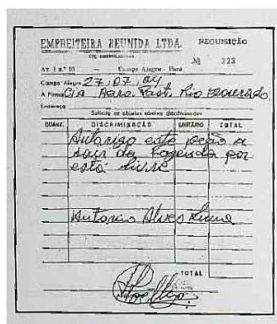 EMPREITEIRA REUNIDA LTDA.
REQUISIÇÃO
Nº 323
Campo Alegre - Pará
Campo Alegre 27, 07, 84
A Firma Cia Agro. Past. Rio
Endereço
Solicito os objetos abaixo discriminados
QUANT. DISCRIMINAÇÃO UNITÁRIO TOTAL
Autorizo este peão a
sair da fazenda por
está livre
Antonio Alves Lima
TOTAL